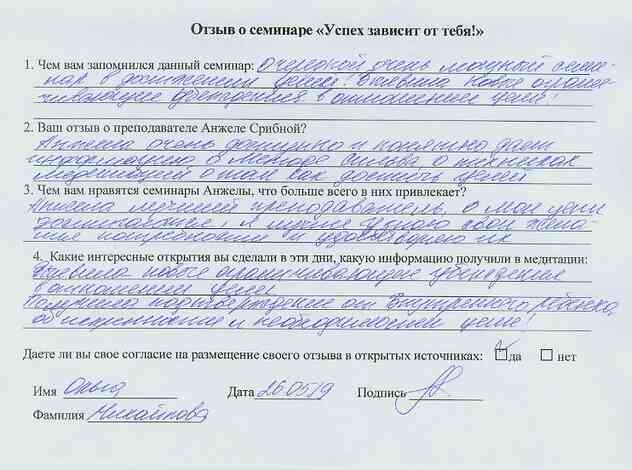 Отзыв о семинаре «Успех зависит от тебя!»
1. Чем вам запомнился данный семинар: очередной очень мощный семи-
нар в достижении целей! Выявила новые ограни-
чивающие убеждения в отношении цели!
2. Ваш отзыв о преподавателе Анжеле Срибной?
Анжела очень доступно и понятно дает
информацию о Методе Силва о техниках
медитации о том как достичь целей
3. Чем вам нравятся семинары Анжелы, что больше всего в них привлекает?
Анжела лучший преподаватель, о мои цели
достигаются, и я
потребности и
4. Какие интересные открытия вы сделали в эти дни, какую информацию получили в медитации:
Выявила новые ограничивающие убеждения
в отношении цели
Получила подтверждение от Внутреннего ребенка,
об и необходимости цели!
Даете ли вы свое согласие на размещение своего отзыва в открытых источниках: да нет
Имя Ольга Дата 26.05.19 Подпись
Фамилия Михайлова